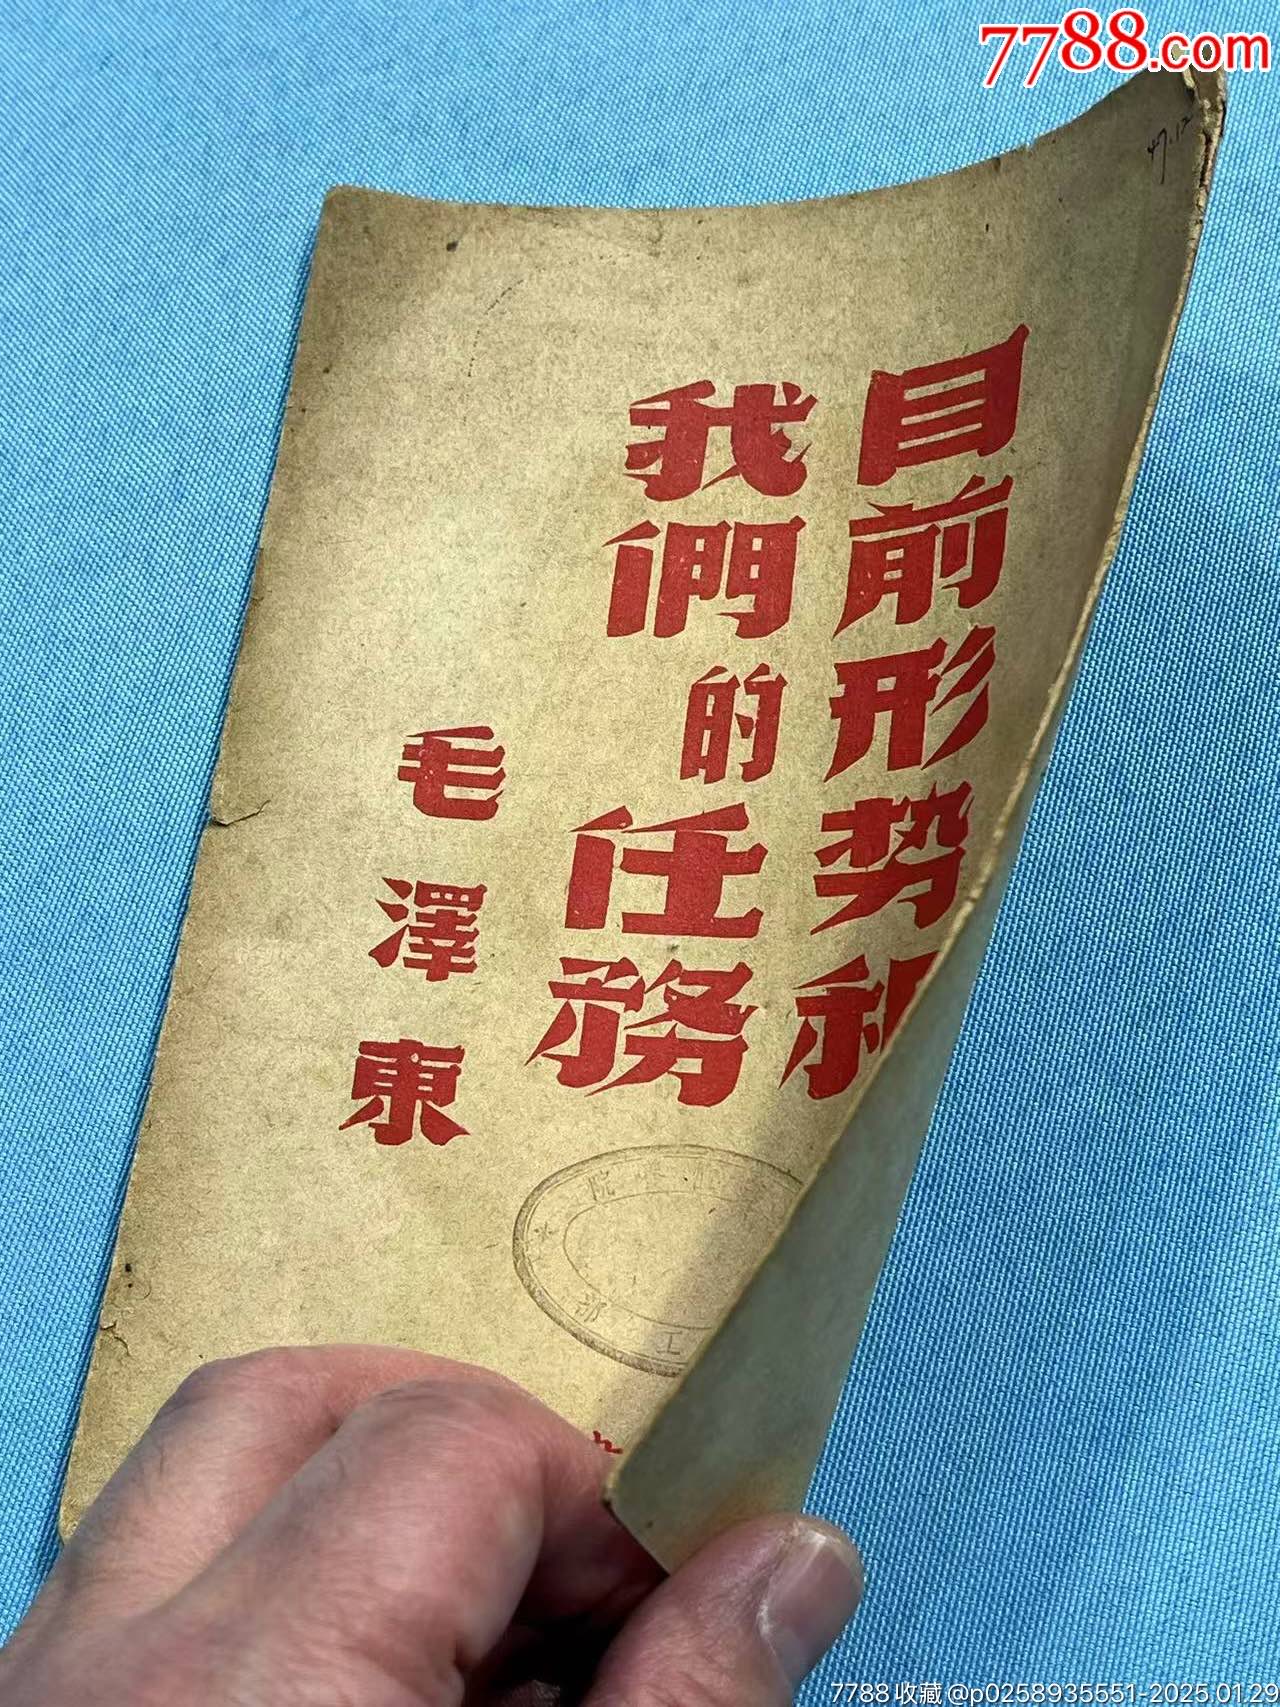 7788.com
47.12
目前形势和
我們的任務
毛澤東
院
部
工
7788收藏@p0258935551-2025.01.29